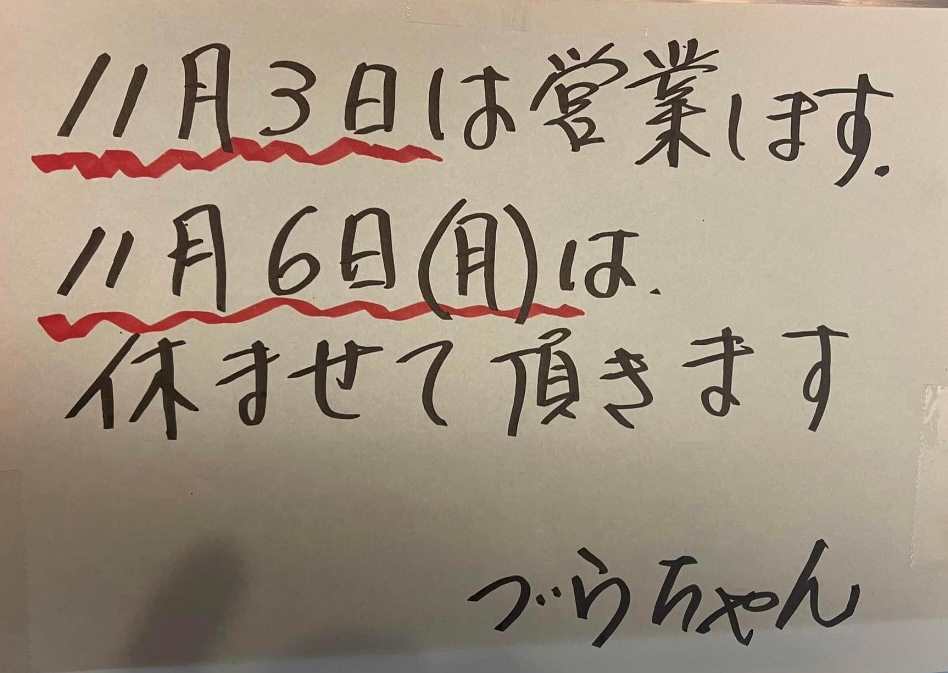 11月3日は営業します.
11月6日(月)は.
休ませて頂きます
づらちゃん